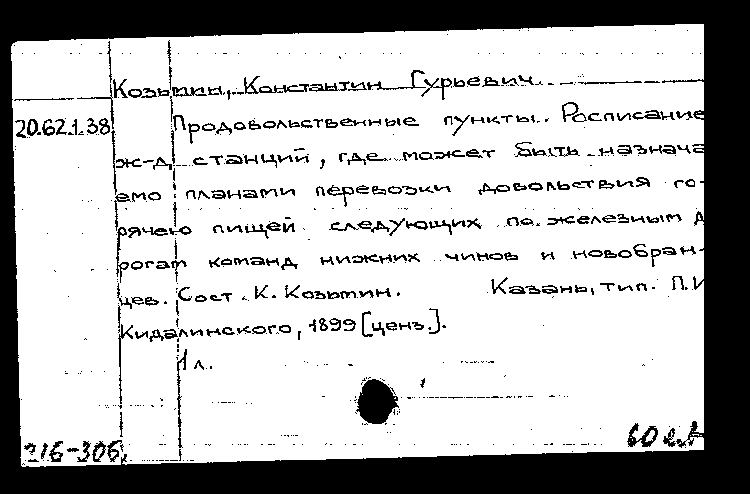 Козьмин, Константин Гурьевич
20.62.1.38 Продовольственные пункты. Росписание
ж-д. станций, где может быть назнача
емо планами перевозки довольствия го-
рячею пищей следующих по железным д
рогам команд нижних чинов и новобран-
цев. Сост. К. Козьмин. Казань, тип. П.И
Кидалинского, 1899 [ценз.].
1 л.
216-306.